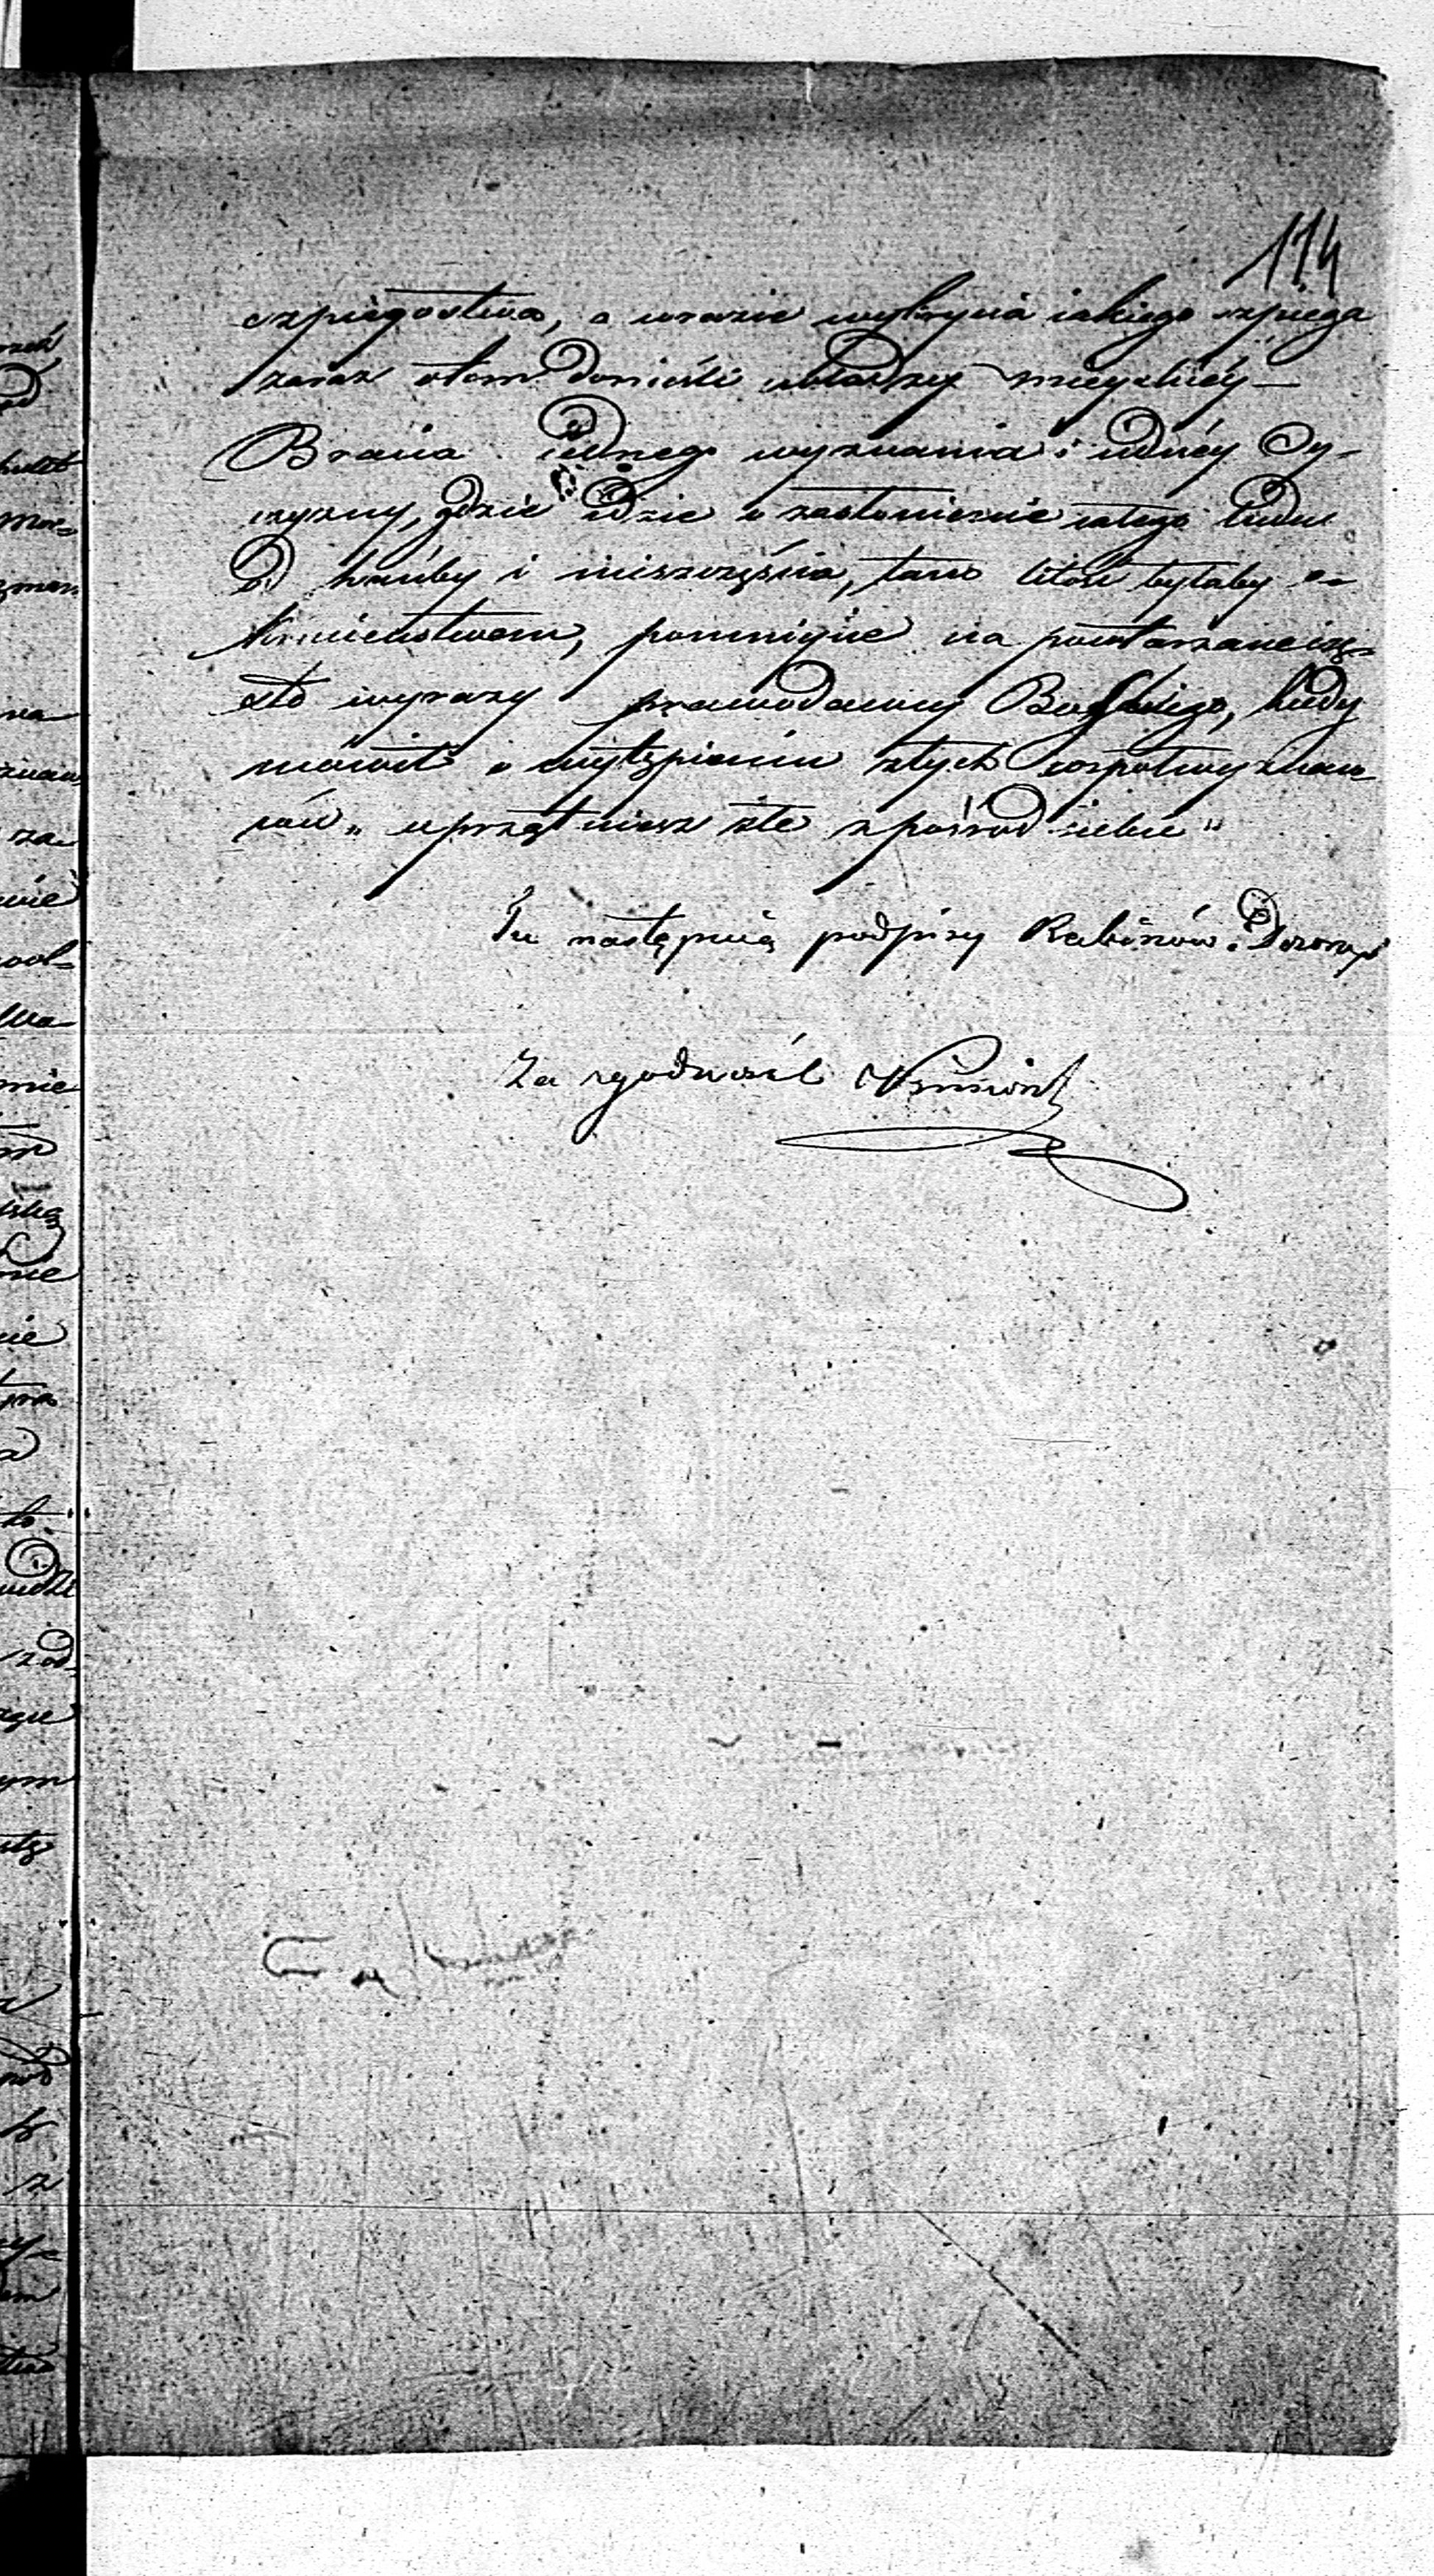 114
szpiegostwa, a wrazie wykrycia iakiego szpiega
zaraz otem donieśli władzy mieyscowéy —
Bracia iednego wyznania i iednéy Oy-
czyzny, gdzie idzie o zasłonienie całego ludu
od hańby i nieszczęścia, tam litość byłaby o-
krucieństwem, pomniycie na powtarzane czę-
sto wyrazy prawodawcy Boskiego, kiedy
mówił o wytępieniu złych współwyznaw-
ców „uprzątniesz złe z pośród siebie"
Tu następuią podpisy Rabinów i Dozorów
Za zgodność